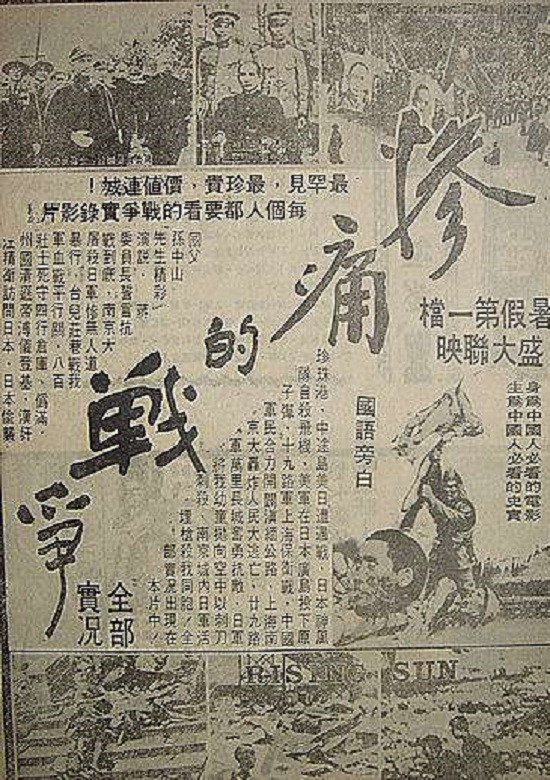 最罕見，最珍貴，價値連城！
每個人都要看的戰爭實錄影片
慘痛的戰爭
全部
實況
暑假第一檔
盛大聯映
身爲中國人必看的電影
生爲中國人必看的史實
國語旁白
國父
孫中山
先生精彩
演說、蔣
委員長誓言抗
戰到底、南京大
屠殺日軍慘無人道
暴行、台兒莊巷戰我
軍血戰平行關、八百
壯士死守四行倉庫、僞滿
州國清遜帝溥儀登基、漢奸
汪精衛訪問日本、日本偷襲
珍珠港、中途島美日遭遇戰、日本神風
隊自殺飛機、美軍在日本廣島投下原
子彈、十九路軍上海保衛戰、中國
軍民合力開闢滇緬公路、上海南
京大轟炸人民大逃亡、廿九路
軍萬里長城奮勇抗敵、日軍
將我幼童拋向空中以刺刀
刺殺、南京城內日軍活
埋槍殺我同胞！全
部實況出現在
本片中！
RISING SUN